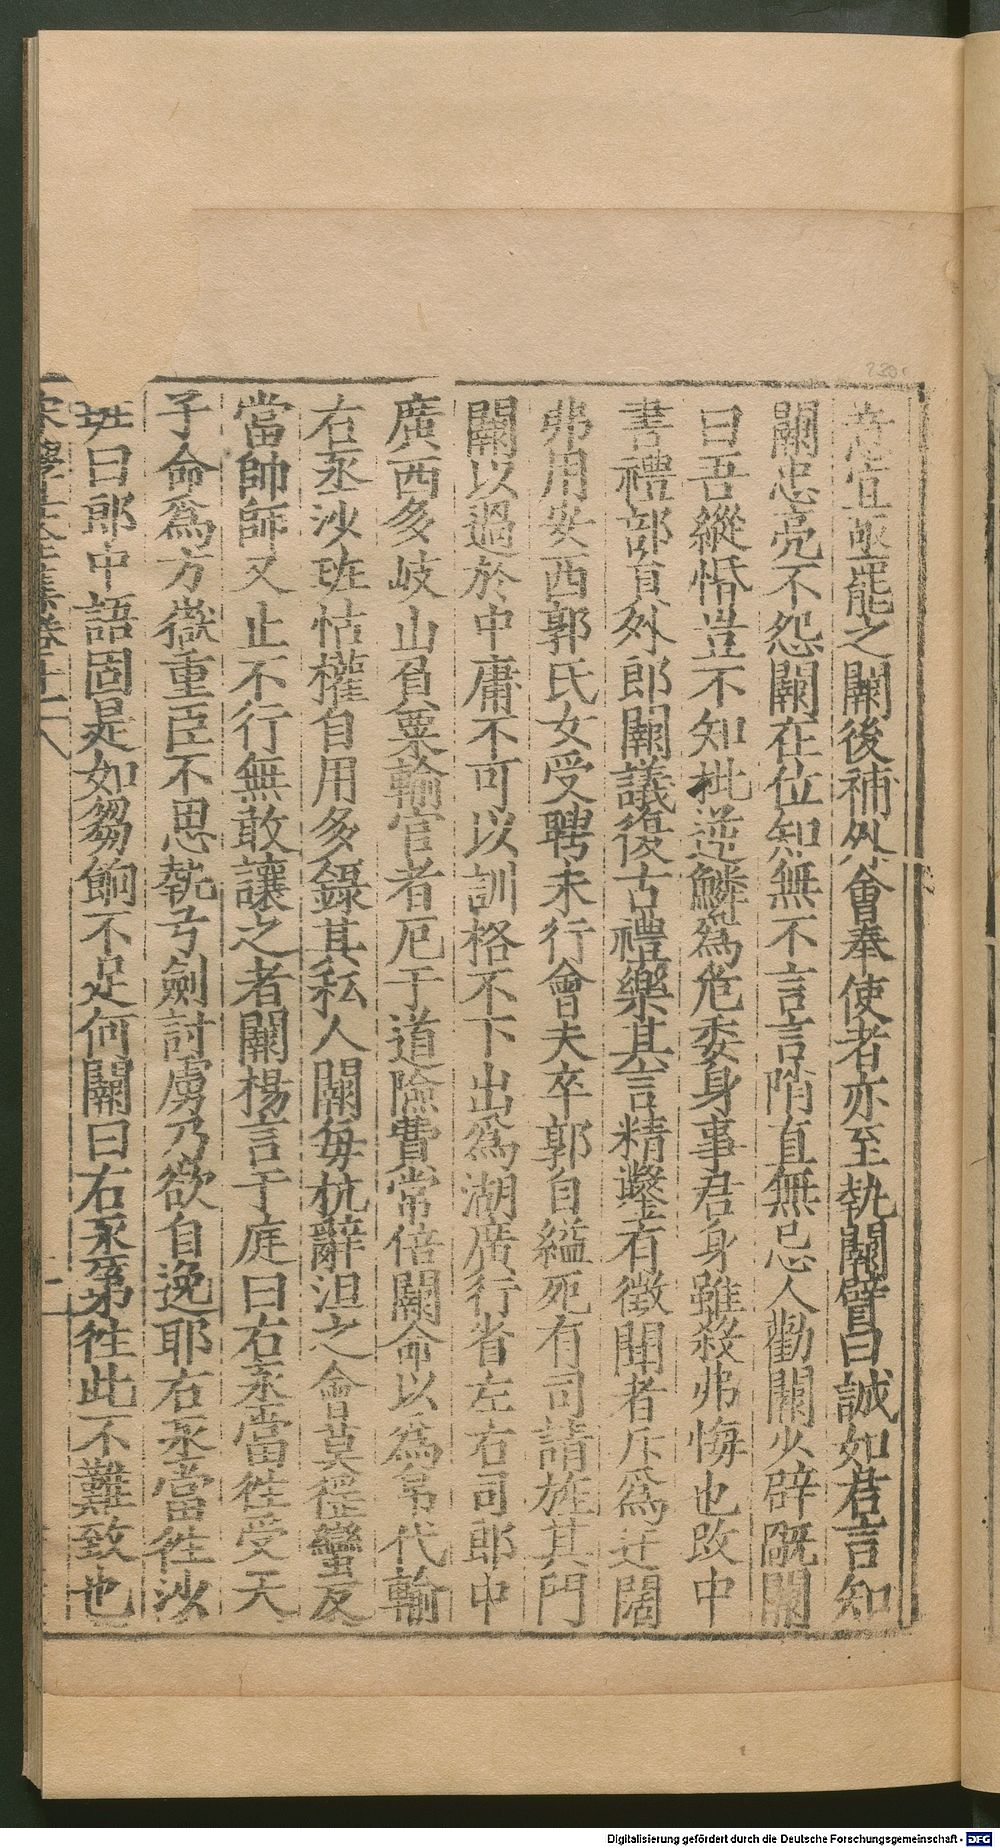 意宜亟罷之關後補外會奉使者亦至執關臂曰誠如君言知
關忠亮不怨關在位知無不言言陗直無忌人勸關少辟嗫關
曰吾縱惛豈不知批逆鱗爲危委身事君身雖殺弗悔也改中
書禮部員外郎關議復古禮樂其言精鑿有徵聞者斥爲迂闊
弗用安西郭氏女受聘未行會夫卒郭自縊死有司請旌其門
關以過於中庸不可以訓格不下出爲湖廣行省左右司郎中
廣西多岐山負粟輸官者厄于道險費常倍關命以爲帛代輸
右丞沙班怙權自用多錄其私人關每抗辭沮之會莫徭蠻反
當帥師又止不行無敢讓之者關楊言于庭曰右丞當往受天
子命爲方嶽重臣不思執弓劍討虜乃欲自逸耶右丞當往沙
班曰郎中語固是如芻餉不足何關曰右丞第往此不難致也
宋學士全集卷
二
Digitalisierung gefördert durch die Deutsche Forschungsgemeinschaft - DFG